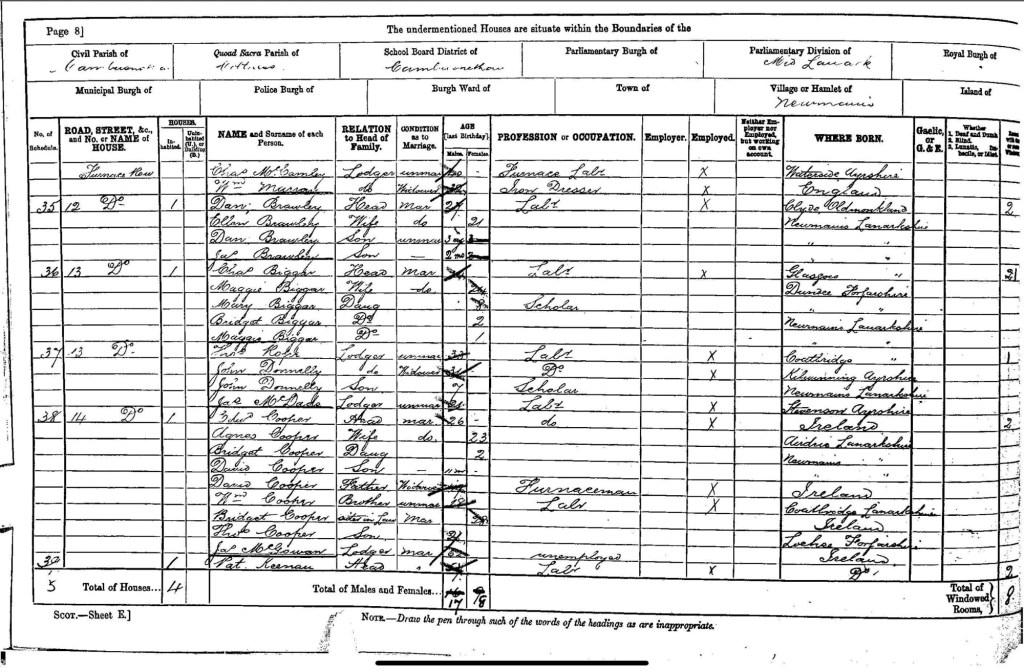 Page 8]
The undermentioned Houses are situate within the Boundaries of the
Civil Parish of
Quoad Sacra Parish of
School Board District of
Parliamentary Burgh of
Parliamentary Division of
Royal Burgh of
Cambusnethan
Mid Lanark
Municipal Burgh of
Police Burgh of
Burgh Ward of
Town of
Village or Hamlet of
Island of
Newmains
No. of Schedule.
ROAD, STREET, &c., and No. or NAME of HOUSE.
HOUSES.
In-habited.
Unin-habited (U.), or Building (B.)
NAME and Surname of each Person.
RELATION to Head of Family.
CONDITION as to Marriage.
AGE [last Birthday].
Males.
Females.
PROFESSION or OCCUPATION.
Employer.
Employed.
Neither Employer nor Employed, but working on own account.
WHERE BORN.
Gaelic, or G. & E.
Whether 1. Deaf and Dumb 2. Blind. 3. Lunatic, Imbecile, or Idiot.
Furnace Row Chas Lodger unmar Furnace Labr X Waterside Ayrshire
Wm do Widower Iron Dresser X England
35 12 Do 1 Dan; Brawley Head Mar 27 Labr X Clyde, Oldmonkland 2
Ellen Brawley Wife do 21 Newmains Lanarkshire
Dan Brawley Son unmar 3 " "
Jas Brawley Son — 2 mo " "
36 13 Do 1 Chas Biggar Head Mar Labr X Glasgow " 2
Maggie Biggar Wife do. Dundee Forfarshire
Mary Biggar Daug 8 Scholar " "
Bridget Biggar Do 2 Newmains Lanarkshire
Maggie Biggar Do 1 " "
37 13 Do Thos Lodger unmar Labr X Coatbridge " 1
John Donnelly do Widower Do X Kilwinning Ayrshire
John Donnelly Son 7 Scholar Newmains Lanarkshire
Jas McDade Lodger unmar 21 Labr X Stevenson Ayrshire
38 14 Do 1 Edwd Cooper Head mar 26 do X Ireland 2
Agnes Cooper Wife do. 23 Airdrie Lanarkshire
Bridget Cooper Daug 2 Newmains "
David Cooper Son — 11 mo " "
David Cooper Father Widower Furnaceman X Ireland
Wm Cooper Brother unmar 28 Labr X Coatbridge Lanarkshire
Bridget Cooper sister in Law Mar Ireland
Thos Cooper Son Lochee Forfarshire
Jas McGowan Lodger mar unemployed Ireland
39 1 Pat. Keenan Head " Labr X Do 2
5 Total of Houses... 4
Total of Males and Females... 17 8
Total of Windowed Rooms, 8
SCOT.—Sheet E.]
NOTE.—Draw the pen through such of the words of the headings as are inappropriate.